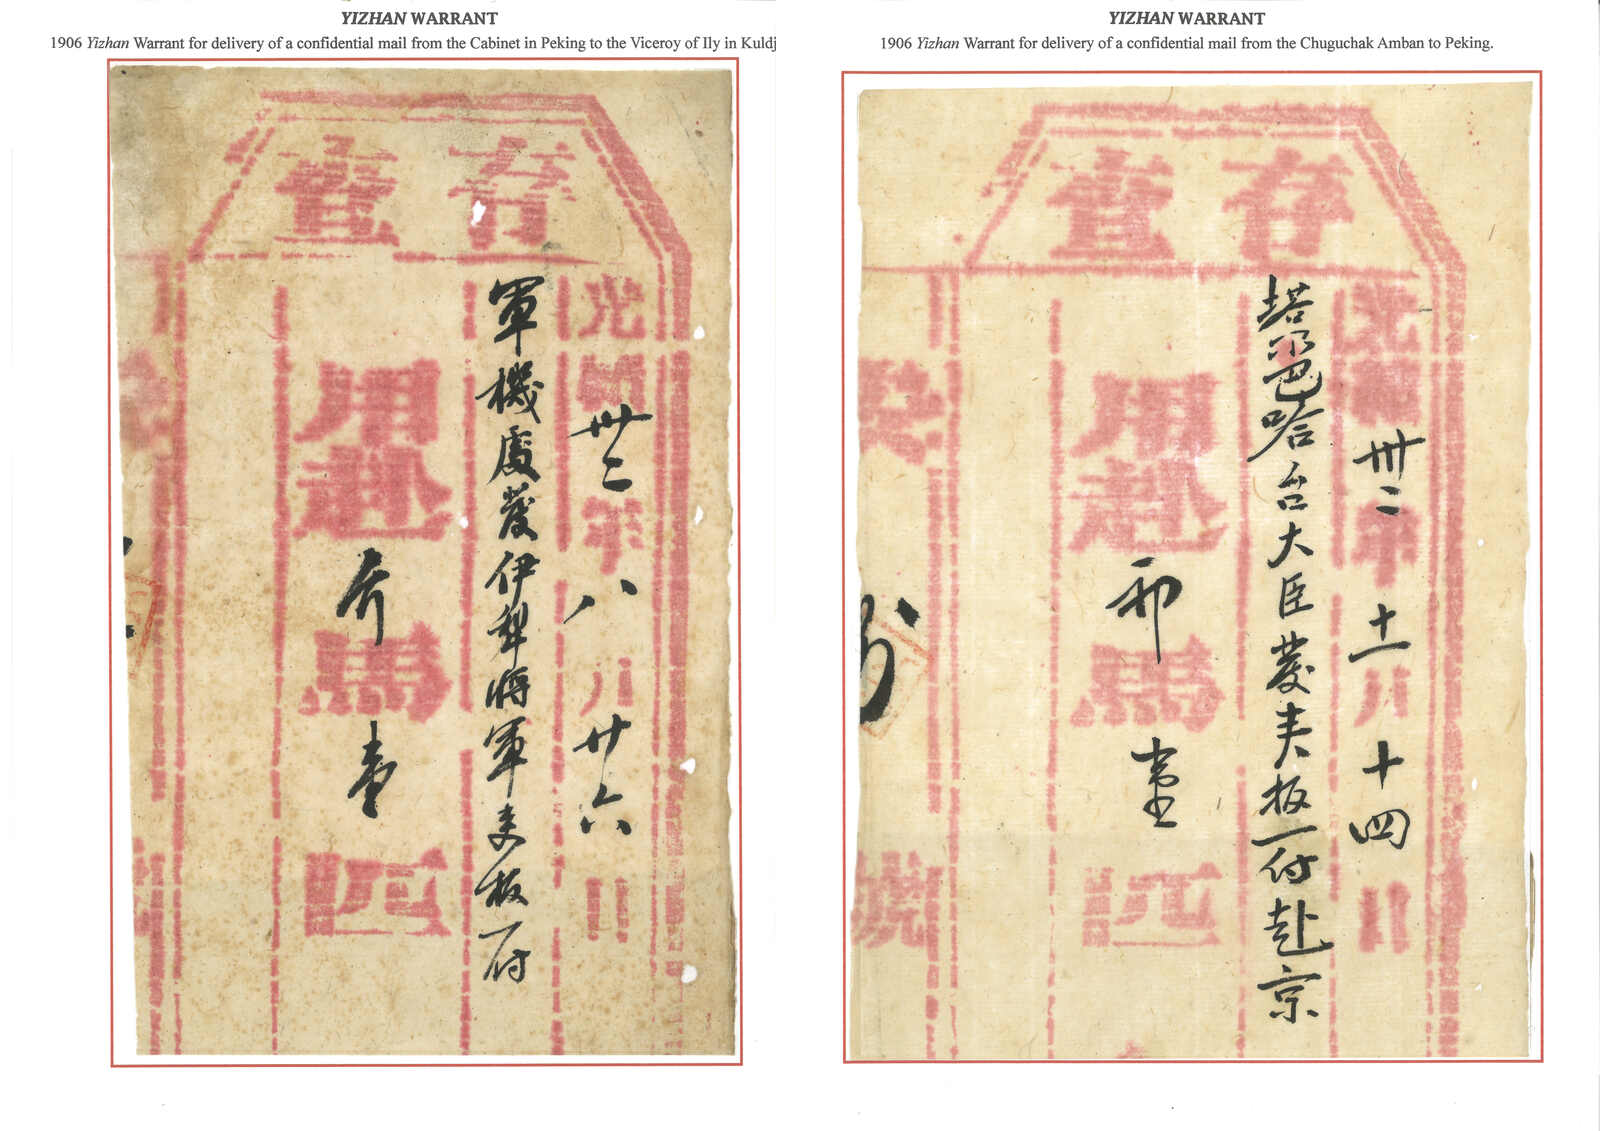 YIZHAN WARRANT
1906 Yizhan Warrant for delivery of a confidential mail from the Cabinet in Peking to the Viceroy of Ily in Kuldj
存查
光緒卅二年八月廿六日
軍機處發伊犁將軍夾板一付
用赴
馬
壹
匹
YIZHAN WARRANT
1906 Yizhan Warrant for delivery of a confidential mail from the Chuguchak Amban to Peking.
存查
光緒卅二年十一月十四日
塔爾巴哈台大臣發夾板一付赴京
用赴
馬
壹
匹
號